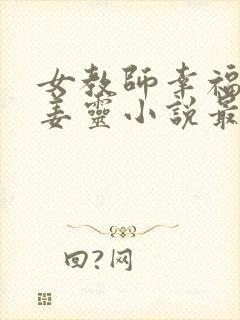 女教師幸福
姜靈小說最
回?网